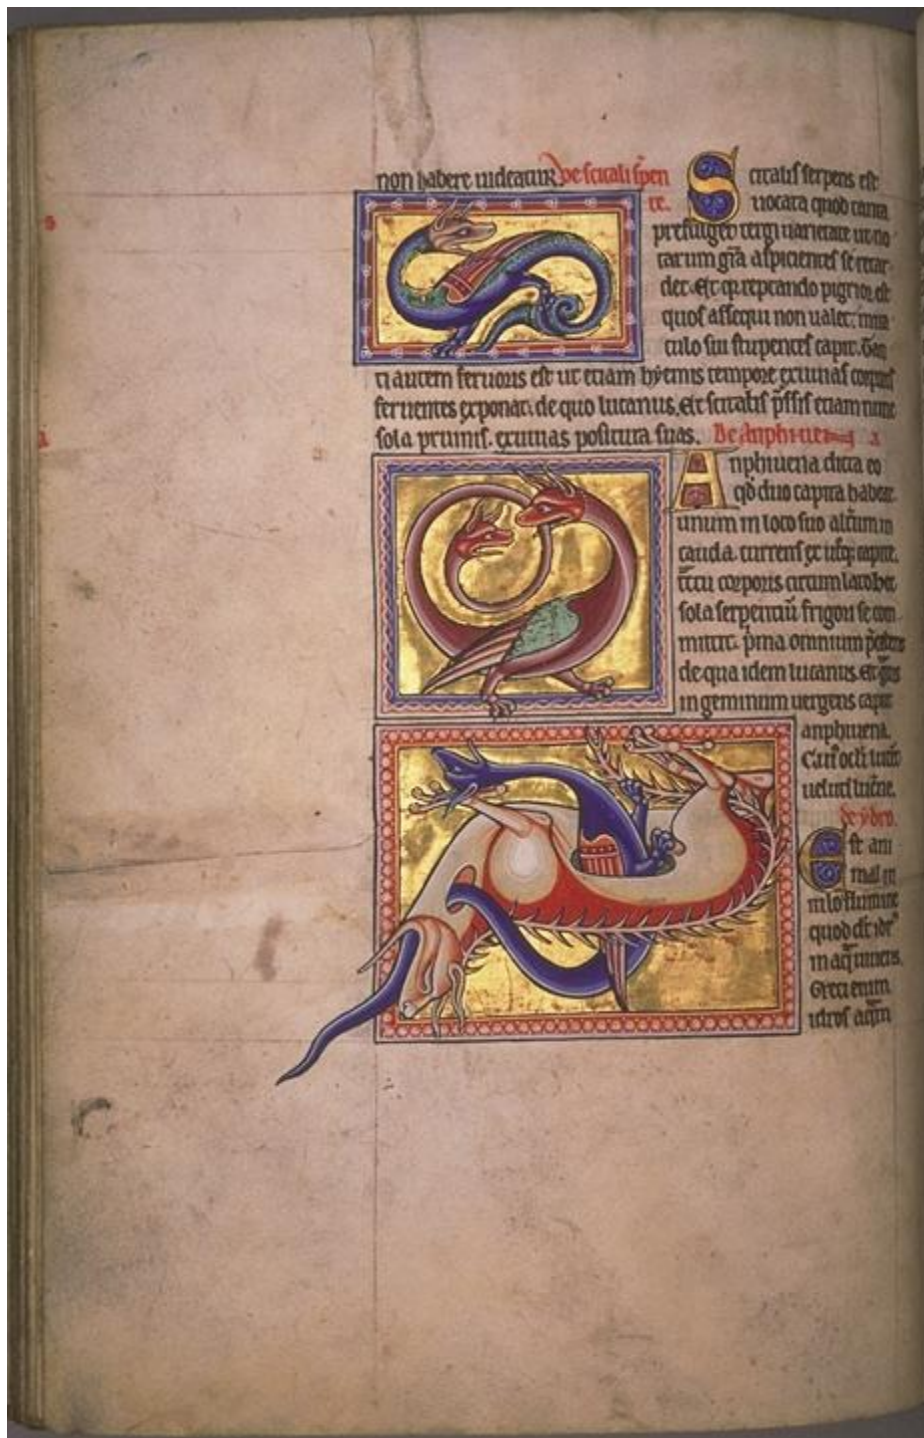 non habere uideatur De scitali serpen
te. Scitalis serpens est
uocata quod tanta
prefulget tergi uarietate ut no
tarum gra aspicientes se retar
det. Et qr reptando pigrior est
quos assequi non ualet, mira
culo sui stupentes capit. Tan
ti autem feruoris est ut etiam hyemis tempore exuuias corporis
feruentes exponat. de quo lucanus. Et scitalis spsis etiam nunc
sola pruinis. exuuias positura suas. De Anphiuena
Anphiuena dicta eo
qd duo capita habeat.
unum in loco suo alterum in
cauda. currens ex utroque capite.
tractu corporis circumlato. hec
sola serpentium frigori se com
mittit. prima omnium procedens
de qua idem lucanus. Et grauis
in geminum uergens caput
anphiuena.
Cuius oculi lucent
ueluti lucerne.
de ydro.
Est ani
mal in
nilo flumine
quod dicitur idrus
in aqua uiuens.
Greci enim
idros aquam